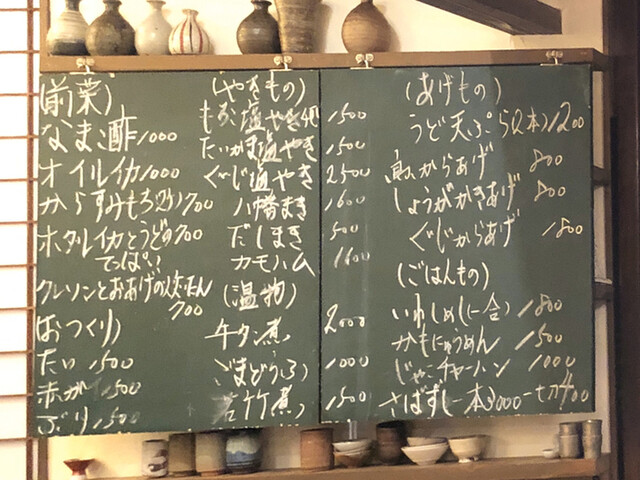 (前菜)
なまこ酢 1000
オイルイカ 1000
からすみもち(2ヶ) 700
ホタルイカとうどの 700
てっぱい
クレソンとおあげの炊たん
700
(おつくり)
たい 1500
赤が 1500
ぶり 1500
(やきもの)
もろこ塩やき 1500
たいかま塩やき 1500
ぐじ塩やき 2500
八幡まき 1600
だしまき 500
カモハム 1600
(温物)
牛タン煮 2000
ごまどうふ 1000
若竹煮 1500
(あげもの)
うど天ぷら(2本) 1200
からあげ 800
しょうがかきあげ 800
ぐじからあげ 1800
(ごはんもの)
いわしめし(一合) 1800
かもにゅうめん 1500
じゃこチャーハン 1000
さばずし 一本3000 一切400